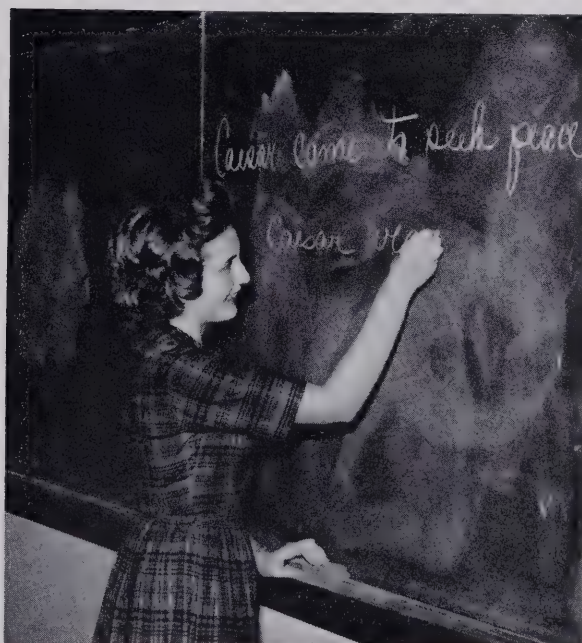 Caesar come to seek peace
Caesar